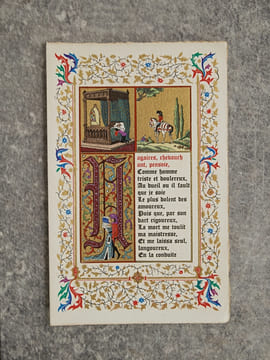 N
agaires, chevauch
ant, pensoie,
Comme homme
triste et douloreux,
Au dueil ou il fault
que je soie
Le plus dolent des
amoureux,
Puis que, par son
dart rigoureux,
La mort me toulit
ma maistresse,
Et me laissa seul,
langoureux,
En la conduite